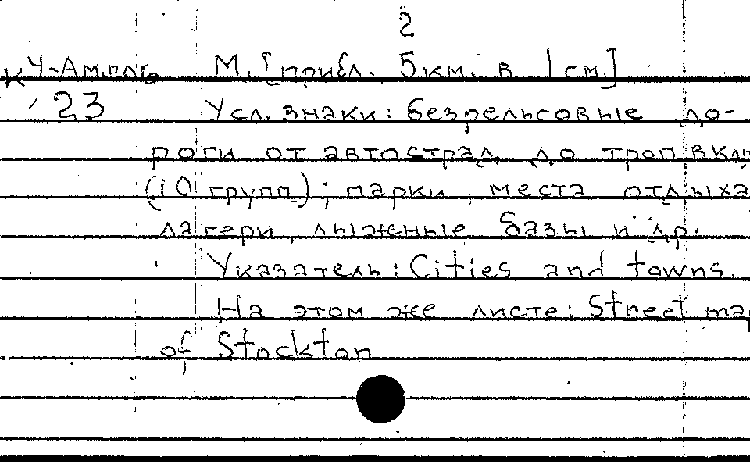 2
К Ч-Ам.
М. [прибл. 5 км. в 1 см.]
23
Усл. знаки: безрельсовые до-
роги от автострад до троп вкл
(10 групп); парки, места отдыха
лагери, лыжные базы и др.
Указатель: Cities and towns.
На этом же листе: Street map
of Stockton